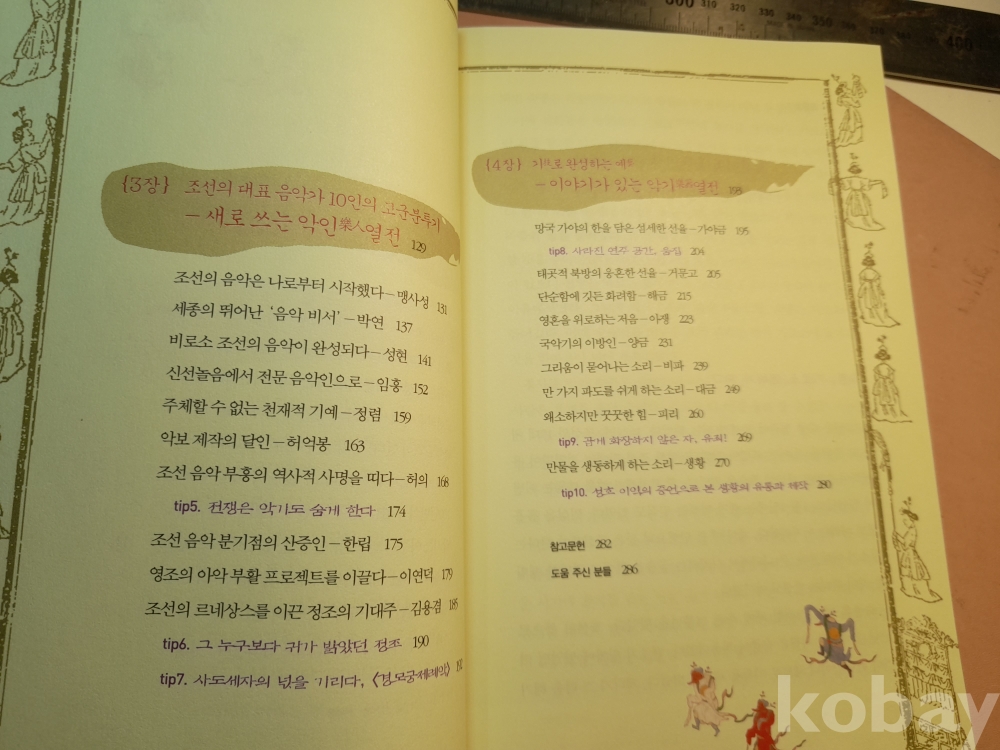 {3장} 조선의 대표 음악가 10인의 고군분투기
– 새로 쓰는 악인樂人열전 129
조선의 음악은 나로부터 시작했다 – 맹사성 131
세종의 뛰어난 ‘음악 비서’ – 박연 137
비로소 조선의 음악이 완성되다 – 성현 141
신선놀음에서 전문 음악인으로 – 임흥 152
주체할 수 없는 천재적 기예 – 정렴 159
악보 제작의 달인 – 허억봉 163
조선 음악 부흥의 역사적 사명을 띠다 – 허의 168
tip5. 전쟁은 악기도 숨게 한다 174
조선 음악 분기점의 산증인 – 한립 175
영조의 아악 부활 프로젝트를 이끌다 – 이연덕 179
조선의 르네상스를 이끈 정조의 기대주 – 김용겸 185
tip6. 그 누구보다 귀가 밝았던 정조 190
tip7. 사도세자의 넋을 기리다, 〈경모궁제례악〉
{4장} 완성하는 예
– 이야기가 있는 악기열전 193
망국 가야의 한을 담은 섬세한 선율 – 가야금 195
tip8. 사라진 연주 공간, 움집 204
태곳적 북방의 웅혼한 선율 – 거문고 205
단순함에 깃든 화려함 – 해금 215
영혼을 위로하는 저음 – 아쟁 223
국악기의 이방인 – 양금 231
그리움이 묻어나는 소리 – 비파 239
만 가지 파도를 쉬게 하는 소리 – 대금 249
왜소하지만 꿋꿋한 힘 – 피리 260
tip9. 곱게 화장하지 않은 자, 유죄! 269
만물을 생동하게 하는 소리 – 생황 270
tip10. 성호 이익의 증언으로 본 생황의 유통과 제작 280
참고문헌 282
도움 주신 분들 286
kobay